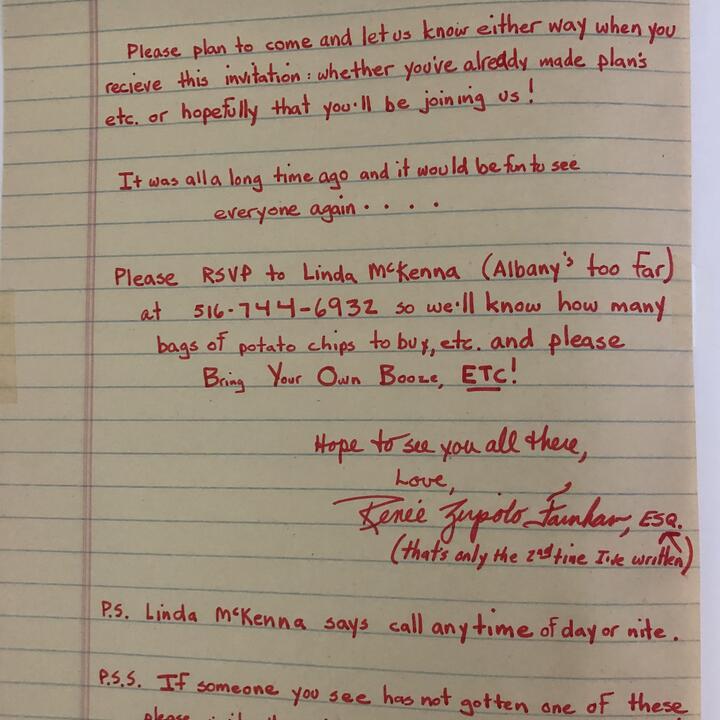 Please plan to come and let us know either way when you
recieve this invitation: whether you've already made plan's
etc. or hopefully that you'll be joining us!
It was all a long time ago and it would be fun to see
everyone again . . . .
Please RSVP to Linda McKenna (Albany's too far)
at 516-744-6932 so we'll know how many
bags of potato chips to buy, etc. and please
Bring Your Own Booze, ETC!
Hope to see you all there,
Love,
Renée Zupolo, ESQ.
(that's only the 2nd time I've written)
P.S. Linda McKenna says call anytime of day or nite.
P.S.S. If someone you see has not gotten one of these
please